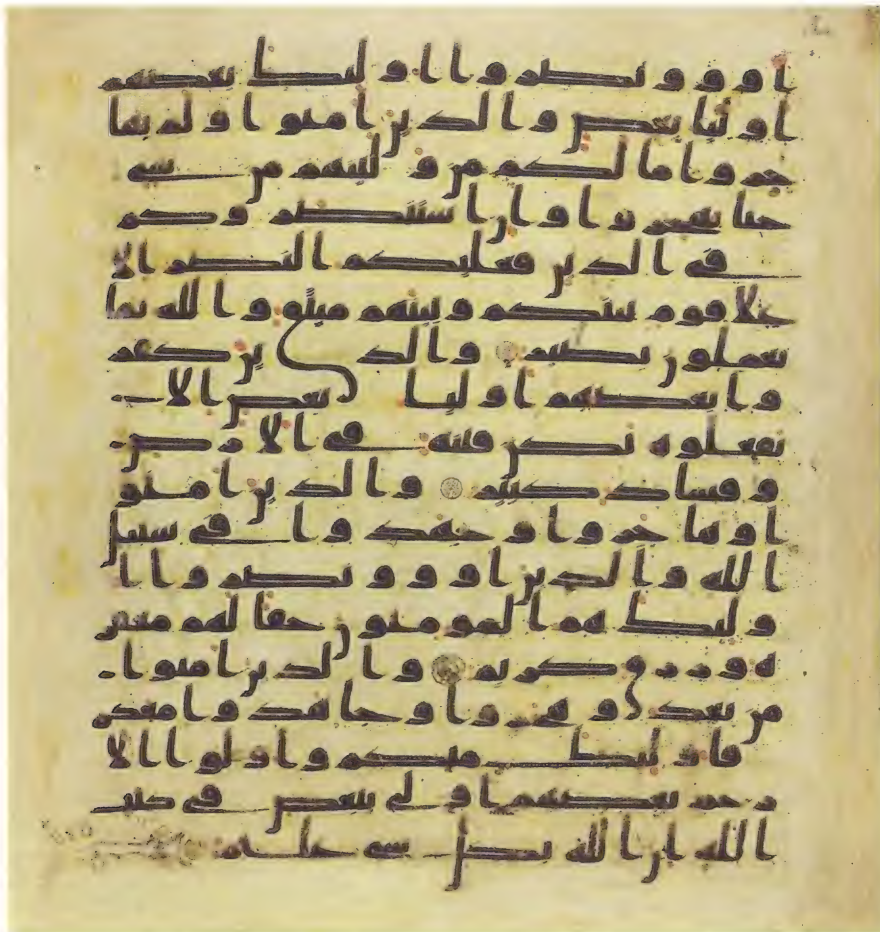 اووا ونصروا اولئك بعضهم
اوليا بعض والذين امنوا ولم يها
جروا ما لكم من وليتهم من شي
حتا يهجروا وان استنصروكم
في الدين فعليكم النصر الا
علا قوم بينكم وبينهم ميثق والله بما
تعملون بصير والذين كفر
وا بعضهم اوليا بعض الا
تفعلوه تكن فتنه في الارض
وفساد كبير والذين امنو
ا وهاجروا وجهدوا في سبيل
الله والذين اووا ونصروا ا
ولئك هم المومنون حقا لهم مغفر
ه ورزق كريم والذين امنوا
من بعد وهجروا وجاهدوا معكم
فاولئك منكم واولوا الا
رحم بعضهم اولى ببعض في كتب
الله ان الله بكل شي عليم